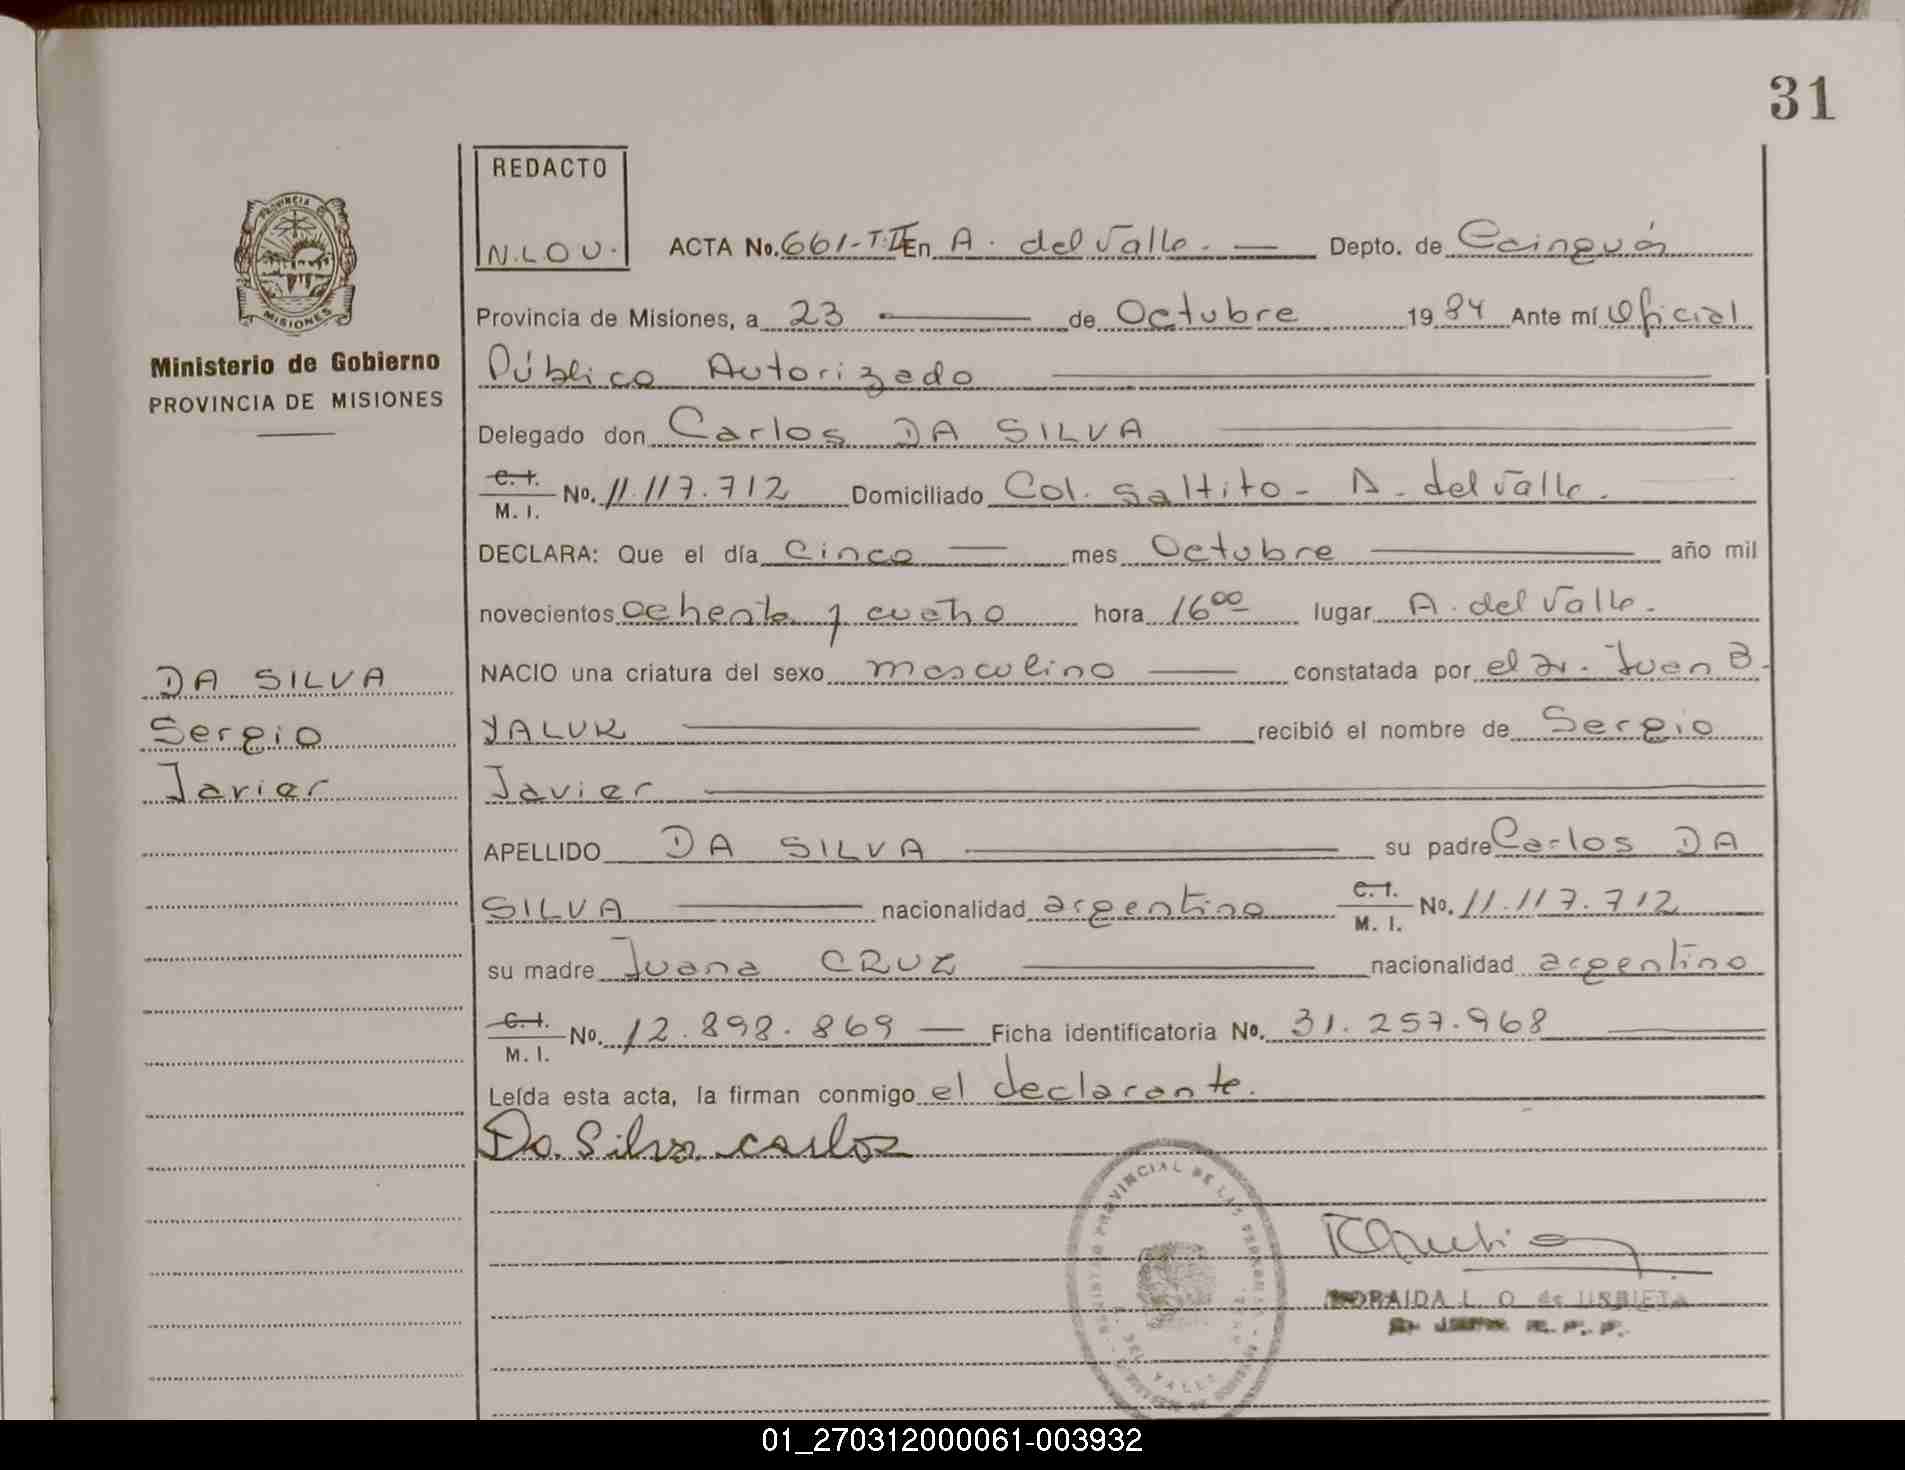 31
REDACTO
N.L.O.U.
ACTA No. 661-T.II En A. del Valle. — Depto. de Cainguás
PROVINCIA
MISIONES
Ministerio de Gobierno
PROVINCIA DE MISIONES
Provincia de Misiones, a 23 — de Octubre 1984 Ante mí Oficial
Público Autorizado
Delegado don Carlos DA SILVA
C. I. M. I. No. 11.117.712 Domiciliado Col. Saltito - A. del Valle.
DECLARA: Que el día Cinco — mes Octubre — año mil
novecientos ochenta y cuatro hora 16⁰⁰ lugar A. del Valle.
NACIO una criatura del sexo masculino — constatada por el Dr. Juan B.
YALUK — recibió el nombre de Sergio
Javier
DA SILVA
Sergio
Javier
APELLIDO DA SILVA — su padre Carlos DA
SILVA — nacionalidad argentino C. I. M. I. No. 11.117.712
su madre Juana CRUZ — nacionalidad argentino
C. I. M. I. No. 12.898.869 — Ficha identificatoria No. 31.257.968
Leída esta acta, la firman conmigo el declarante.
Da Silva carlos
REGISTRO PROVINCIAL DE LAS PERSONAS
DEL VALLE
L. O. de URBIETA
R. P. P.
01_270312000061-003932